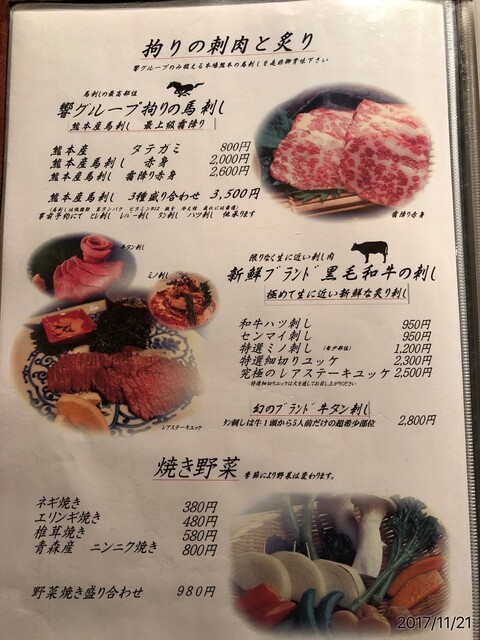 拘りの刺肉と炙り
響グループのみ扱える本場熊本の馬刺しを是非御賞味下さい
馬刺しの最高部位
響グループ拘りの馬刺し
熊本産馬刺し 最上級霜降り
熊本産 タテガミ 800円
熊本産馬刺し 赤身 2,000円
熊本産馬刺し 霜降り赤身 2,600円
熊本産馬刺し 3種盛り合わせ 3,500円
事前予約にて ヒレ刺し レバー刺し タン刺し ハツ刺し 他承ります
霜降り赤身
牛タン刺し
ミノ刺し
レアステーキユッケ
限りなく生に近い刺し肉
新鮮ブランド黒毛和牛の刺し
極めて生に近い新鮮な炙り刺し
和牛ハツ刺し 950円
センマイ刺し 950円
特選ミノ刺し (希少部位) 1,200円
特選細切りユッケ 2,300円
究極のレアステーキユッケ 2,500円
特選細切りユッケは火を通してお召し上がりください
幻のブランド牛タン刺し
タン刺しは牛1頭から5人前だけの超希少部位 2,800円
焼き野菜 季節により野菜は変わります。
ネギ焼き 380円
エリンギ焼き 480円
椎茸焼き 580円
青森産 ニンニク焼き 800円
野菜焼き盛り合わせ 980円
2017/11/21